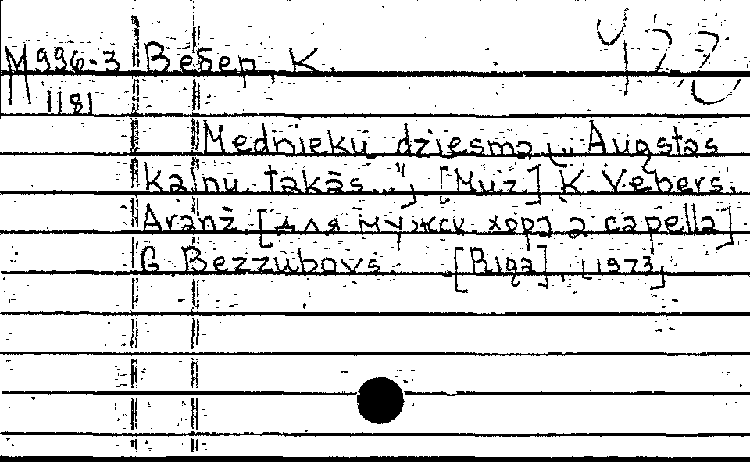 М 996-3 Вебер, К.
1181
Mednieku dziesma („Augstas
kalnu takās..."). [Muz.] K. Vēbers.
Aranž. [для мужск. хора a capella]
G. Bezzubovs. [Rīga], [1973]